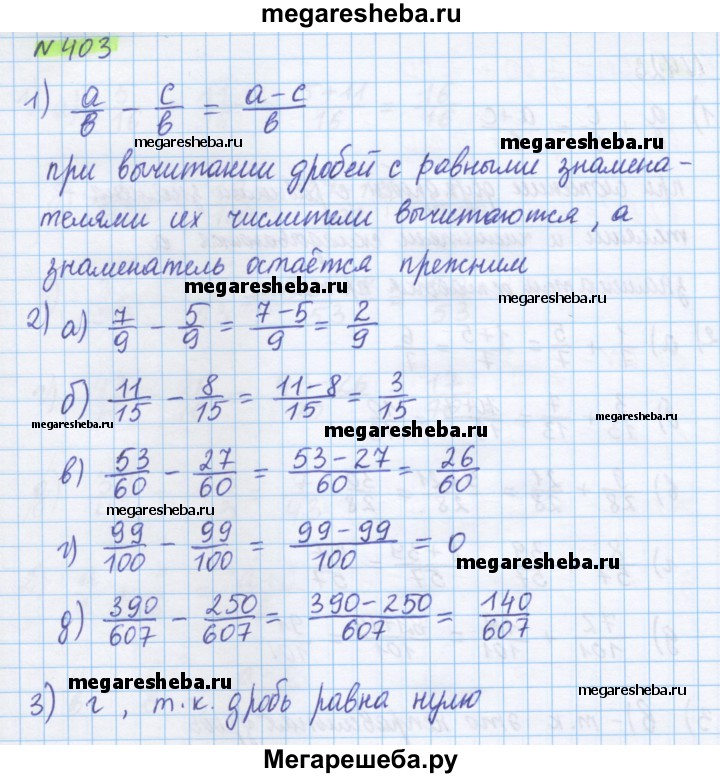 megaresheba.ru
N 403
1) a/в − c/в = a−c/в
megaresheba.ru
megaresheba.ru
при вычитании дробей с равными знамена-
телями их числители вычитаются, а
знаменатель остаётся прежним
megaresheba.ru
megaresheba.ru
2) а) 7/9 − 5/9 = 7−5/9 = 2/9
б) 11/15 − 8/15 = 11−8/15 = 3/15
megaresheba.ru
megaresheba.ru
megaresheba.ru
в) 53/60 − 27/60 = 53−27/60 = 26/60
megaresheba.ru
г) 99/100 − 99/100 = 99−99/100 = 0
megaresheba.ru
д) 390/607 − 250/607 = 390−250/607 = 140/607
megaresheba.ru
megaresheba.ru
3) г, т.к. дробь равна нулю
Мегарешеба.ру